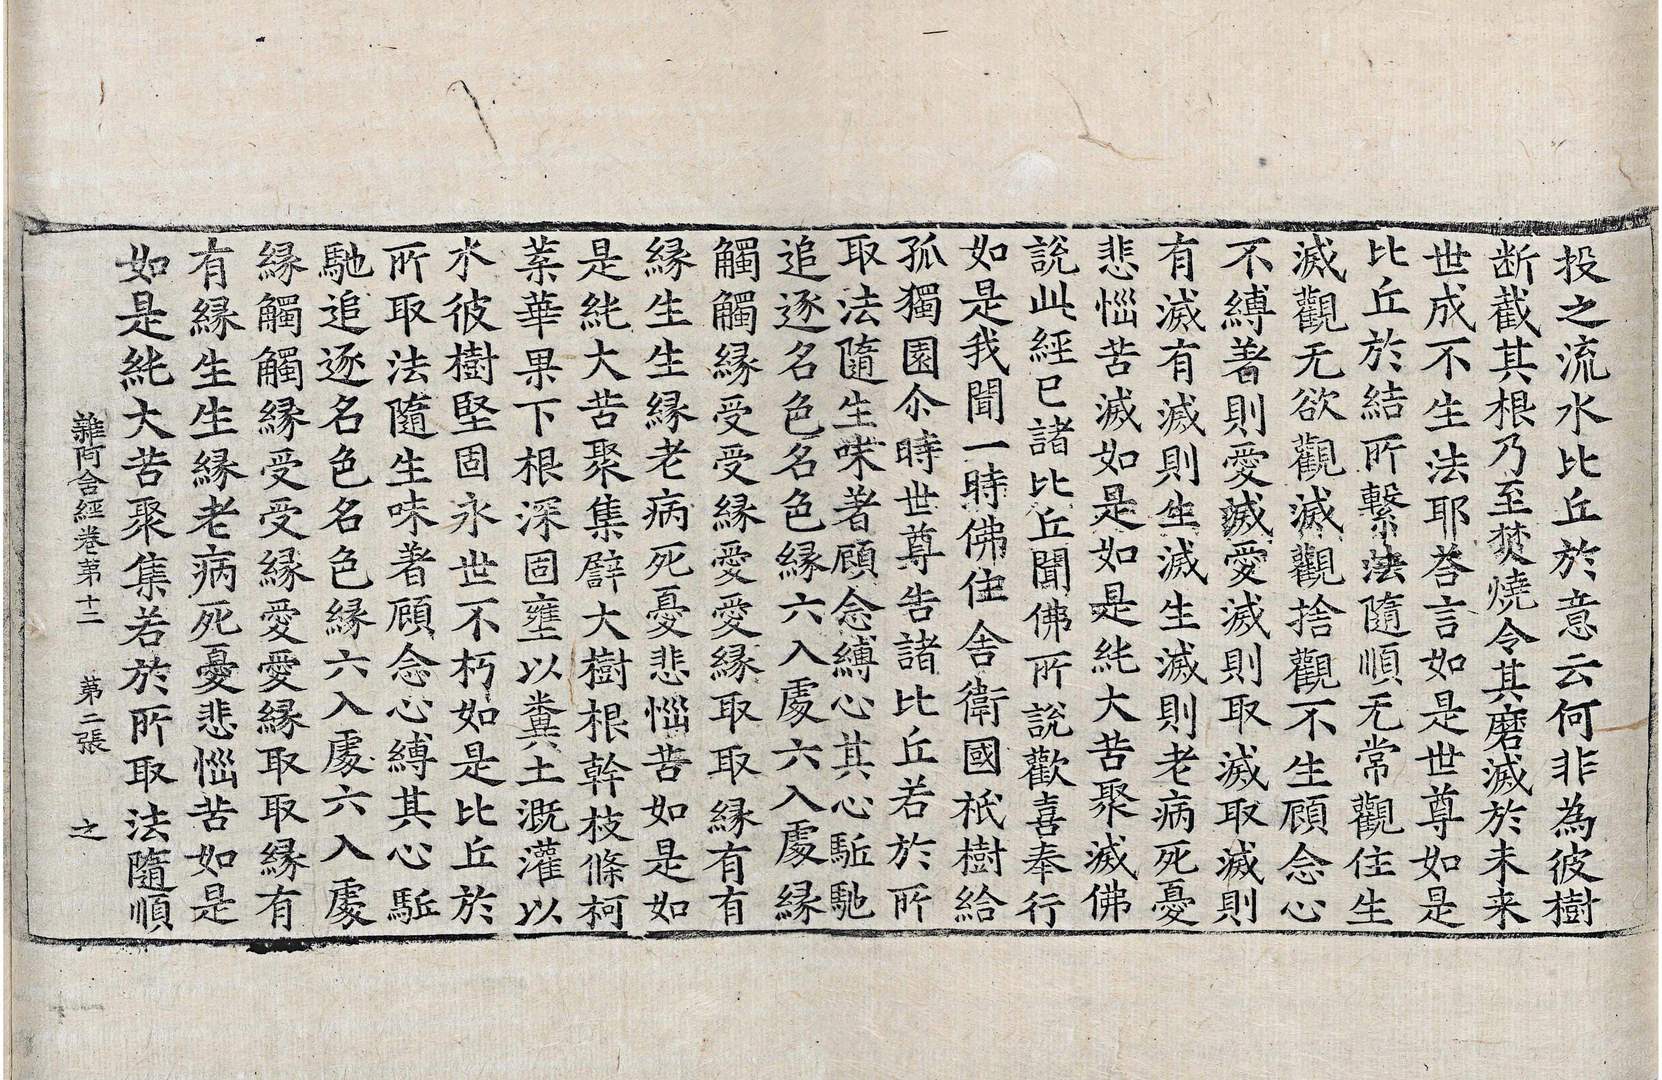 投之流水比丘於意云何非為彼樹
断截其根乃至焚燒令其磨滅於未来
世成不生法耶荅言如是世尊如是
比丘於結所繫法隨順无常觀住生
滅觀无欲觀滅觀捨觀不生顧念心
不縛著則愛滅愛滅則取滅取滅則
有滅有滅則生滅生滅則老病死憂
悲惱苦滅如是如是純大苦聚滅佛
說此經已諸比丘聞佛所說歡喜奉行
如是我聞一時佛住舍衛國祇樹給
孤獨園尒時世尊告諸比丘若於所
取法隨生味著顧念縛心其心駈馳
追逐名色名色緣六入處六入處緣
觸觸緣受受緣愛愛緣取取緣有有
緣生生緣老病死憂悲惱苦如是如
是純大苦聚集譬大樹根幹枝條柯
葉華果下根深固壅以糞土溉灌以
水彼樹堅固永世不朽如是比丘於
所取法隨生味著顧念心縛其心駈
馳追逐名色名色緣六入處六入處
緣觸觸緣受受緣愛愛緣取取緣有
有緣生生緣老病死憂悲惱苦如是
如是純大苦聚集若於所取法隨順
雜阿含經卷苐十二 苐二張 之